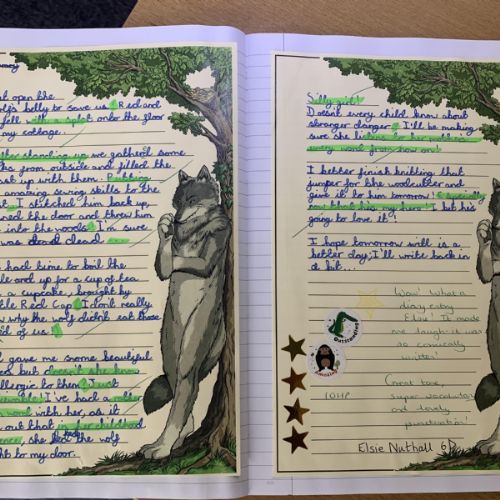 t open the
olf's belly to save us. Red and
fell with a splat onto the floor
my cottage.
After standing up we gathered some
from outside and filled the
up with them.
amazing sewing skills to the
I stitched him back up,
ned the door and threw him
into the woods. I'm sure
was dead dead
had time to boil the
le and up for a cup of tea
cupcake, brought by
tle Red Cap. I don't really
why the wolf didn't eat those
of us
gave me some beautiful
but doesn't she know
allergic to them. Just
I've had a
word with her, as it
out that in her childhood
she led the wolf
ht to my door.
Silly girl!
Doesnt every child know about
stranger danger? I'll be making
sure she listens to her
every word from now on!
I better finish knitting that
jumper for the woodcutter and
give it to him tomorrow! Especially
now that his my hero! I bet his
going to love it!
I hope tomorrow will is a
better day; I'll write back in
a bit...
Wow! What a
diary entry
Elsie! It made
me laugh - it was
so comically
written!
Outstanding
Amazing
10HP
Great tone,
super vocabulary
and lovely
punctuation!
Elsie Nuthall 6D